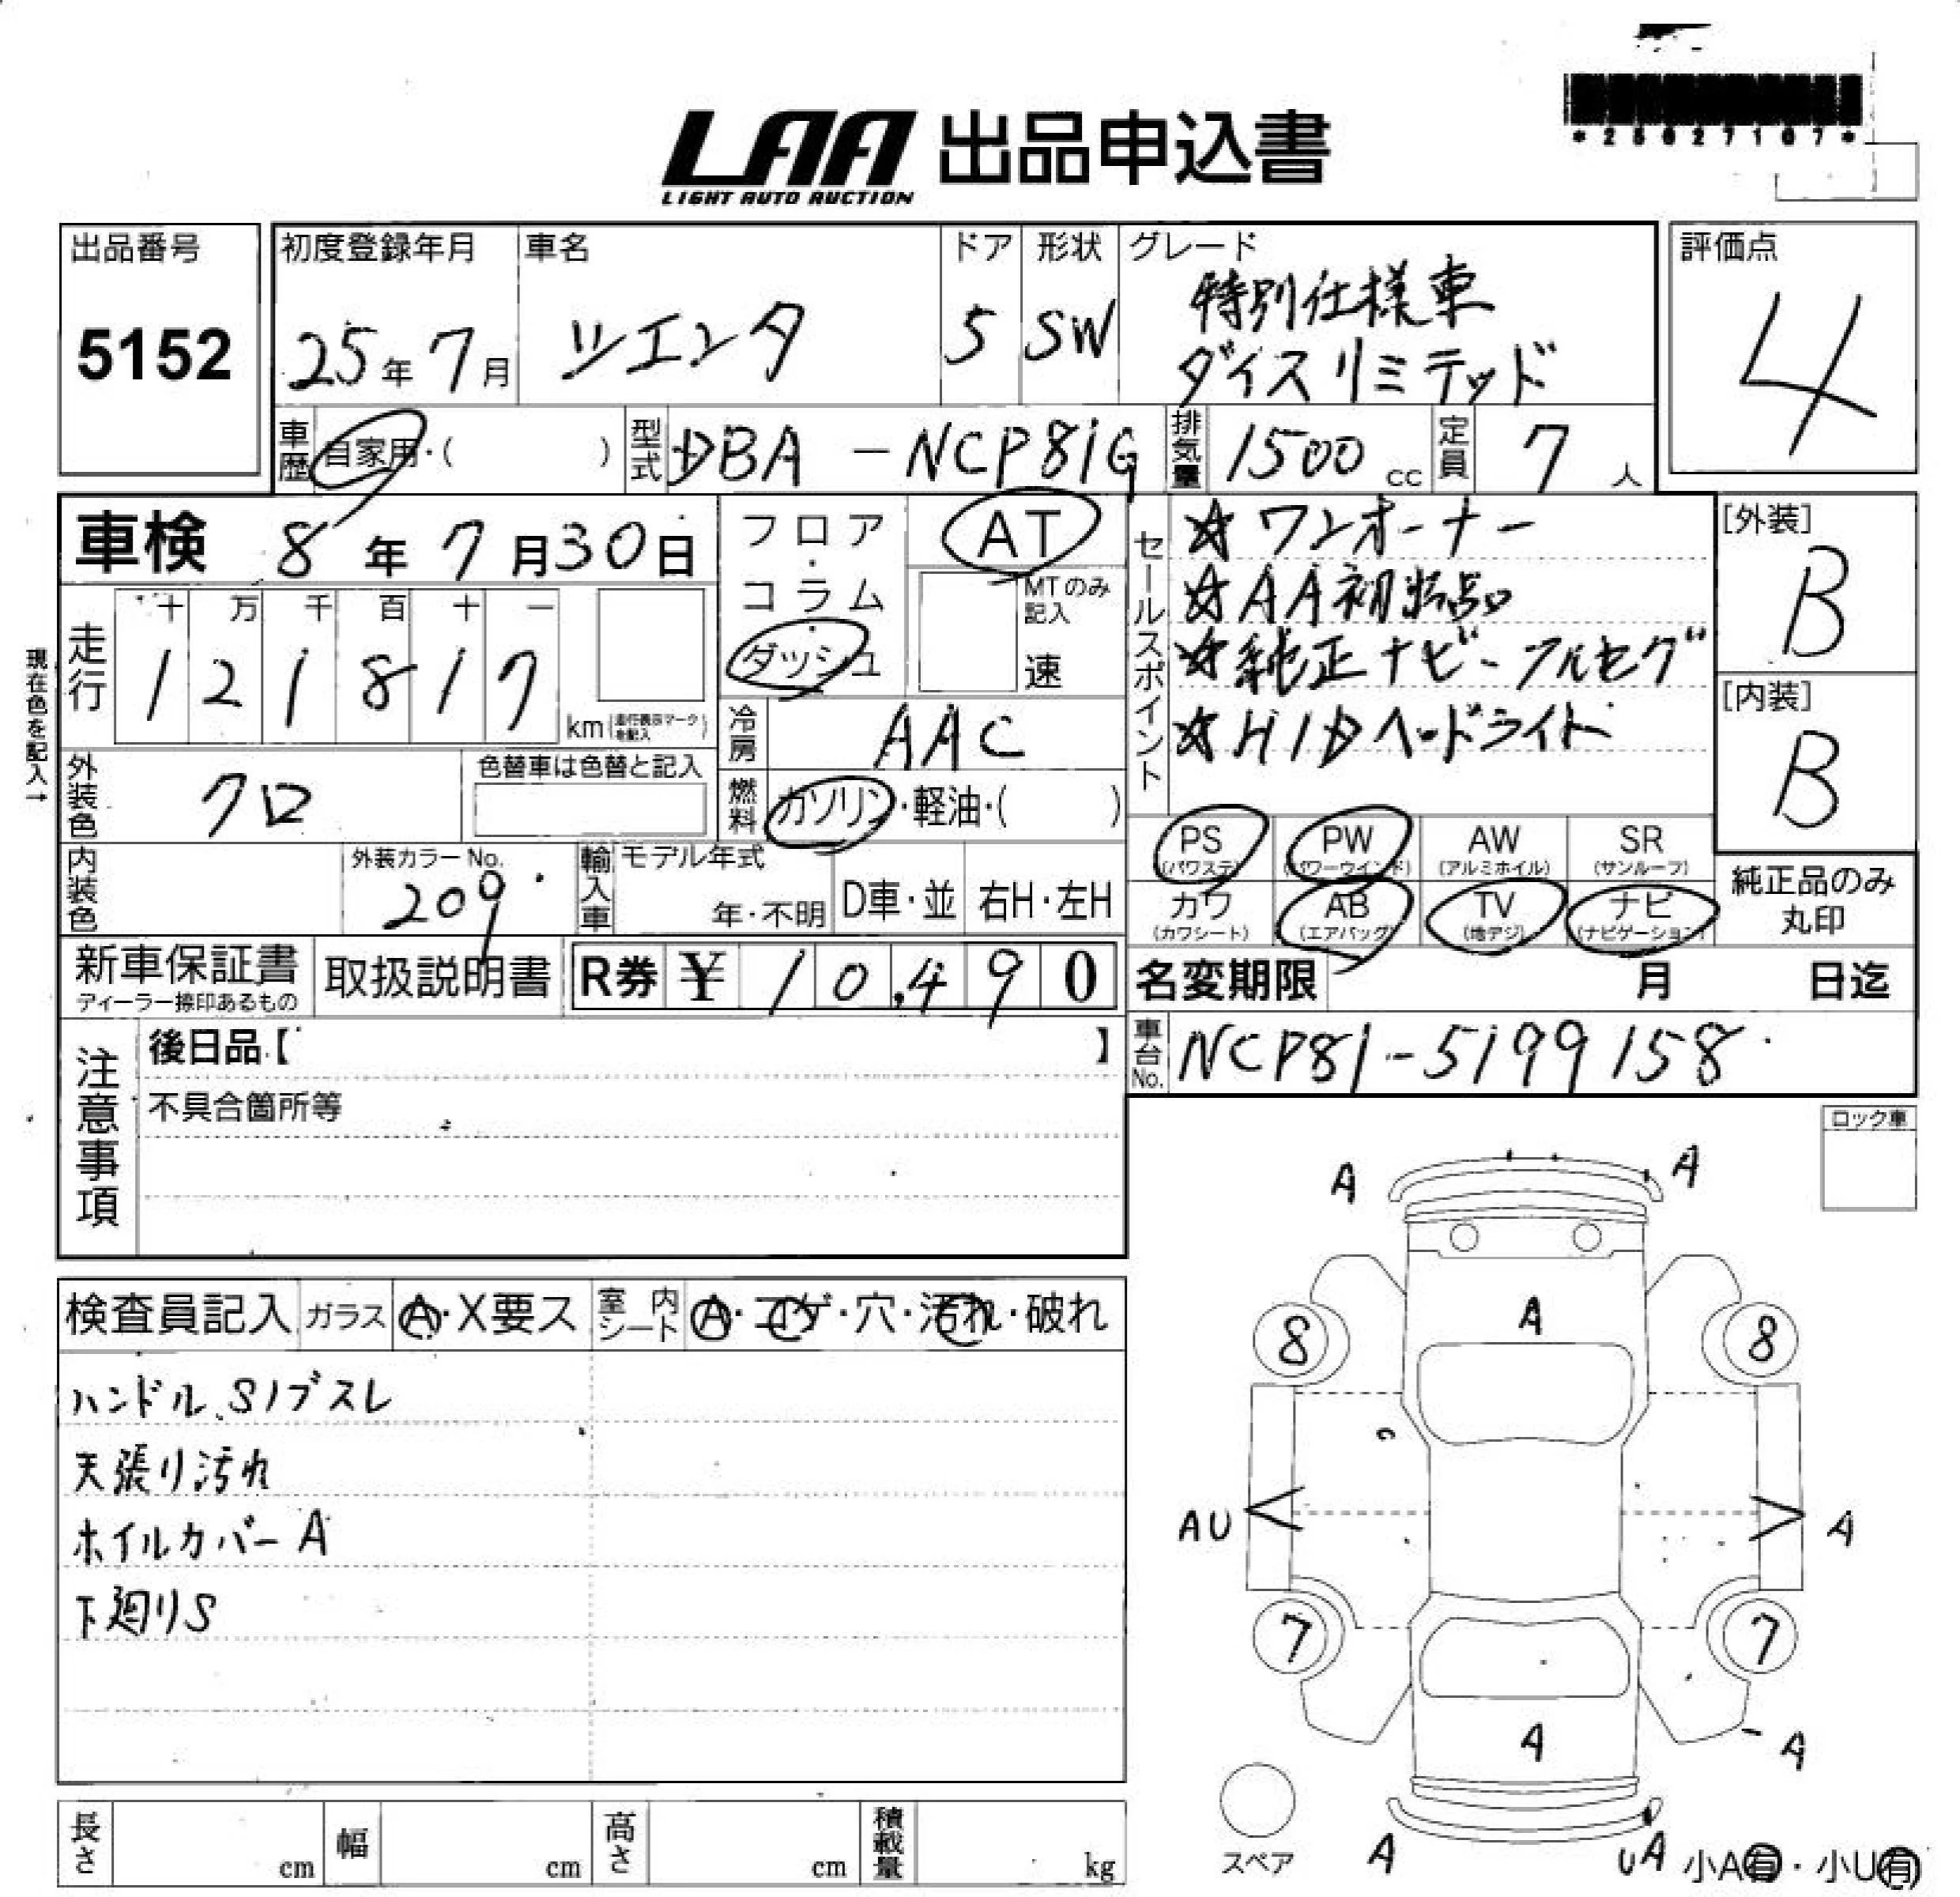 LAA 出品申込書
LIGHT AUTO AUCTION
*25027107*
出品番号
5152
初度登録年月
25年7月
車名
シエンタ
ドア
5
形状
SW
グレード
特別仕様車
ダイスリミテッド
評価点
4
車歴
自家用・( )
型式
DBA-NCP81G
排気量
1500 cc
定員
7人
車検 8年7月30日
現在色を記入→
走行
十 万 千 百 十 一
1 2 1 8 1 7
km(走行表示マークを記入)
フロア・コラム・ダッシュ
AT
MTのみ記入
速
冷房
AAC
燃料
ガソリン・軽油・( )
セールスポイント
☆ワンオーナー
☆AA初出品
☆純正ナビ-フルセグ
☆HIDヘッドライト
[外装]
B
[内装]
B
外装色
クロ
色替車は色替と記入
内装色
外装カラーNo.
209
輸入車
モデル年式
年・不明
D車・並
右H・左H
PS
(パワステ)
PW
(パワーウインド)
AW
(アルミホイル)
SR
(サンルーフ)
カワ
(カワシート)
AB
(エアバッグ)
TV
(地デジ)
ナビ
(ナビゲーション)
純正品のみ
丸印
新車保証書
ディーラー捺印あるもの
取扱説明書
R券 ¥ 10,490
名変期限 月 日迄
車台No.
NCP81-5199158
注意事項
後日品【 】
不具合箇所等
ロック車
検査員記入
ガラス
A・X要ス
室内シート
A・コゲ・穴・汚れ・破れ
ハンドル、Sノブスレ
天張り汚れ
ホイルカバーA
下廻りS
A
A
A
8
8
AU
A
7
7
A
A
スペア
A
UA
小A有・小U有
長さ
cm
幅
cm
高さ
cm
積載量
kg